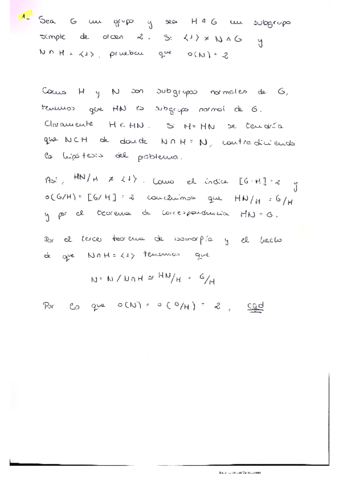 1- Sea G un grupo y sea H ◁ G un subgrupo
simple de orden 2. Si <1> ≠ N ◁ G y
N ∩ H = <1>, prueban que o(N) = 2
Como H y N son subgrupos normales de G,
tenemos que HN es subgrupo normal de G.
Claramente H < HN. Si H = HN se tendría
que N ⊂ H de donde N ∩ H = N, contradiciendo
la hipótesis del problema.
Así, HN/H ≠ <1>. Como el índice [G:H] = 2 y
o(G/H) = [G/H] = 2 concluimos que HN/H = G/H
y por el teorema de correspondencia HN = G.
Por el tercer teorema de isomorfía y el hecho
de que N∩H = <1> tenemos que
N = N / N∩H ≅ HN/H = G/H
Por lo que o(N) = o(G/H) = 2, cqd